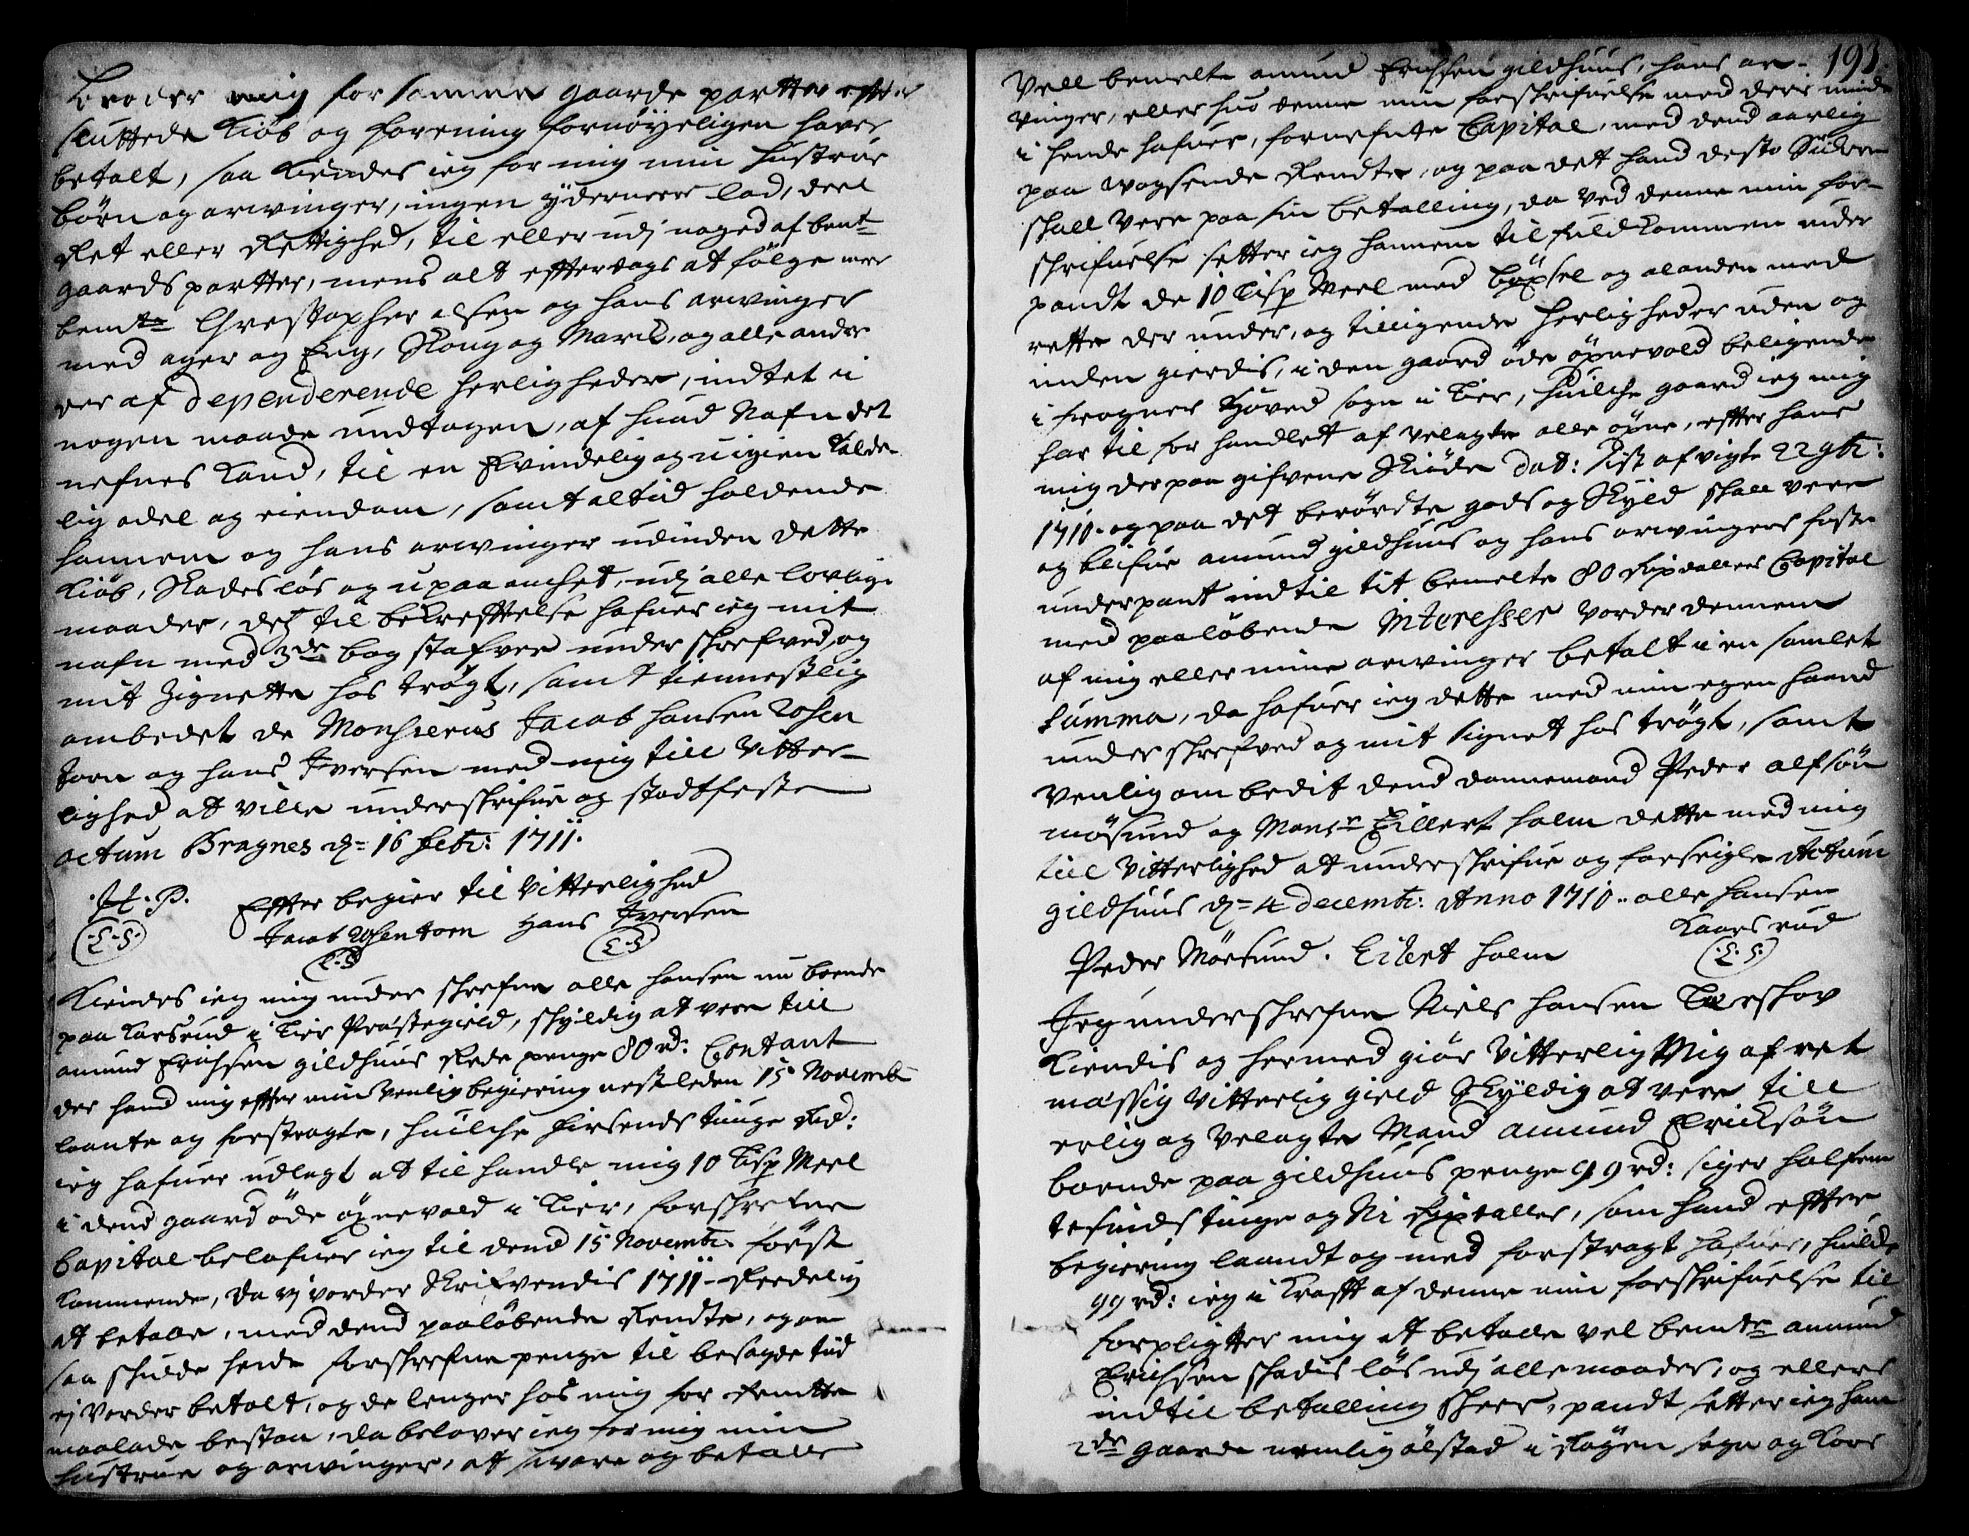 Broder mig for samme gaarde partter efter
sluttede Kiöb og forening fornöyeligen haver
betalt, saa kiendes ieg for mig min hustrue
börn og arwinger, ingen ydermeere lod, deel
Ret eller Rettighed, til eller udj noged af bemte
gaards partter, mens alt efftterdags at fölge meer
bemte Chrestopher olsen og hans arwinger
med ager og Eng, Skoug og Marck, og alle andre
der af dependerende herligheder, indtet i
nogen maade undtagen, af huad Nafn det
nefnes kand, til en Ævindelig og uigien kalde-
lig odel og eiendom, samt altid holdende
hannem og hans arwinger udinden dette
Kiöb, Skadeslös og upaa ancket, udj alle lovlige
maader, des til bekrefftelse hafuer ieg mit
nafn med 3de bogstafver under schrefved, og
mit Zignette hos trögt, samt tiennestlig
ombedet de Monsieurs Jacob hansen Rosen
torn og hans Iversen med mig till Vitter-
lighed at ville underschrifue og stadtfeste
actum Bragnes d= 16 febr: 1711.
H. P. Effter begier til Vitterlighed
L.S. Jacob Rosentorn Hans Iversen
L.S L.S
Kiendes ieg mig under schrefne olle hansen nu boende
paa Korsrud i Lier Præstegield, schyldig at vere till
amund Erichsen gildhuus Rede penge 80 rd: Contant
der hand mig effter min Venlig begiering nestleden 15 Novemb
laante og forstragte, huilche firsends tiuge Rd:
ieg hafuer udlagt at til handle mig 10 Lisp Meel
i dend gaard öde öxnevold i Lier, forschrefne
Capital belofuer ieg til dend 15 Novembr först
kommende, da vj vorder Skrifvendis 1711 - Reedelig
at betale, med dend paalöbende Rendte, og om
saa schulde hende forschrefne penge til besagde tiid
ej Vorder betalt, og de lenger hos mig for Rendtte
maatte bestaa, da belover ieg for mig min
hustrue og arwinger, at svare og betalle
193.
Vell bemelte amund Erichsen gildhuus, hans ar-
vinger, eller huo denne min forschrifuelse med deris minde
i hende hafuer, fornefnte Capital, med dend aarlig
paa voxende Rendte, og paa det hand desto Sickrere
schall Vere paa sin betalling, da ved denne min for-
schrifuelse setter ieg hannem til fuldkommen under
pandt de 10 Lisp Meel med böxsel og alanden med
rette der under, og tilligende herligheder uden og
inden gierdis, i den gaard öde öxnevold beligende
i frogner hoved sogn i Lier, huilche gaard ieg mig
har til for handlet af velagte olle öxne, effter hans
mig der paa gifvene Skiöde dat: sist afvigte 22 9br:
1710. og paa det berördte gods og Skyld schall vere
og blifue amund gildhuus og hans arwingers faste
underpant indtil tit bemelte 80 Rixdallers Capital
med paalöbende Interesser vorder dennem
af mig eller mine arvinger betalt i en samlet
Summa, da hafuer ieg dette med min egen haand
underschrefved og mit signet hos trögt, samt
Venlig om bedit dend dannemand Peder alfsön
mösund og Monsr Eillert holm dette med mig
till Vitterlighed at underschrifue og forseigle Actum
gildhuus d= 4 decembr: Anno 1710.. olle hansen
Kaarsrud
Peder Mörsund. Eilert holm L.S.
Jeg underschrefne Niels hansen Lærskov
Kiendis og hermed giör Vitterlig Mig af ret
mæssig Vitterlig gield Skyldig at vere till
erlig og Velagte Mand amund Ericksön
boende paa gildhuus penge 99 rd: siger halfem
tesinds tiuge og Ni Rixdaller, som hand effter
begiering laandt og med forstragt hafuer, huilke
99 rd: ieg i Krafft af denne min forschrifuelse til
forpligtter mig at betale vel bemte amund
Erichsen schadislös udj alle maader, og ellers
indtil betalling scheer, pandt setter ieg ham
2de gaarde nemlig ölstad i Röyen sogn og Kors